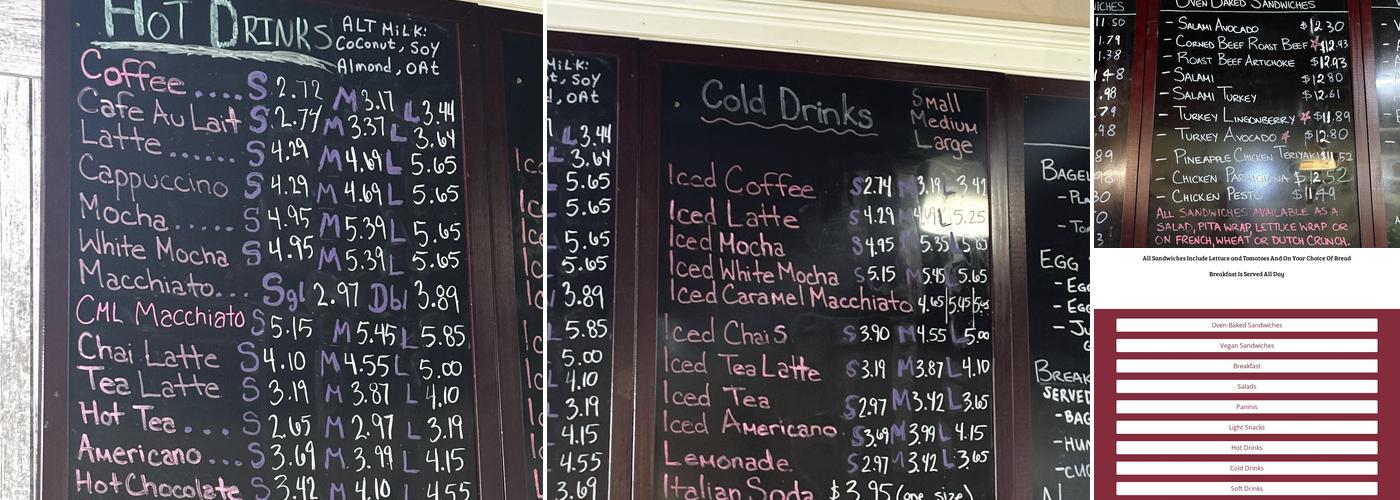 HOT DRINKS
ALT MILK:
Coconut, SOY
Almond, OAt
Coffee ..... S 2.72 M 3.17 L 3.44
Cafe Au Lait S 2.74 M 3.37 L 3.64
Latte ...... S 4.29 M 4.69 L 5.65
Cappuccino S 4.29 M 4.69 L 5.65
Mocha ..... S 4.95 M 5.39 L 5.65
White Mocha S 4.95 M 5.39 L 5.65
Macchiato... Sgl 2.97 Dbl 3.89
CML Macchiato S 5.15 M 5.45 L 5.85
Chai Latte S 4.10 M 4.55 L 5.00
Tea Latte S 3.19 M 3.87 L 4.10
Hot Tea ... S 2.65 M 2.97 L 3.19
Americano .... S 3.69 M 3.99 L 4.15
Hot Chocolate S 3.42 M 4.10 L 4.55
MiLK:
t, SOY
, OAt
L 3.44
L 3.64
5.65
5.65
5.65
5.65
3.89
5.85
5.00
4.10
3.19
4.15
4.55
3.69
Cold Drinks
Small
Medium
Large
Iced Coffee S 2.74 M 3.19 L 3.42
Iced Latte S 4.29 M 4.69 L 5.25
Iced Mocha S 4.95 M 5.35 L
Iced White Mocha S 5.15 M 5.45 L 5.65
Iced Caramel Macchiato 4.65 5.45
Iced Chai S 3.90 M 4.55 L 5.00
Iced Tea Latte S 3.19 M 3.87 L 4.10
Iced Tea S 2.97 M 3.42 L 3.65
Iced Americano S 3.69 M 3.99 L 4.15
Lemonade. S 2.97 M 3.42 L 3.65
Italian Soda $3.95 (one size)
BAGEL
EGG
BREAK
SERVED
OVEN BAKED SANDWICHES
- SALAMI AVOCADO $12.30
- CORNED BEEF ROAST BEEF $12.93
- ROAST BEEF ARTICHOKE $12.93
- SALAMI $12.80
- SALAMI TURKEY $12.61
- TURKEY LINGONBERRY $11.89
- TURKEY AVOCADO $12.80
- PINEAPPLE CHICKEN TERIYAKI $11.52
- CHICKEN PARMIGIANA $12.52
- CHICKEN PESTO $11.49
ALL SANDWICHES AVAILABLE AS A
SALAD, PITA WRAP, LETTUCE WRAP OR
ON FRENCH, WHEAT OR DUTCH CRUNCH.
All Sandwiches Include Lettuce and Tomatoes And On Your Choice Of Bread
Breakfast Is Served All Day
Oven-Baked Sandwiches
Vegan Sandwiches
Breakfast
Salads
Paninis
Light Snacks
Hot Drinks
Cold Drinks
Soft Drinks